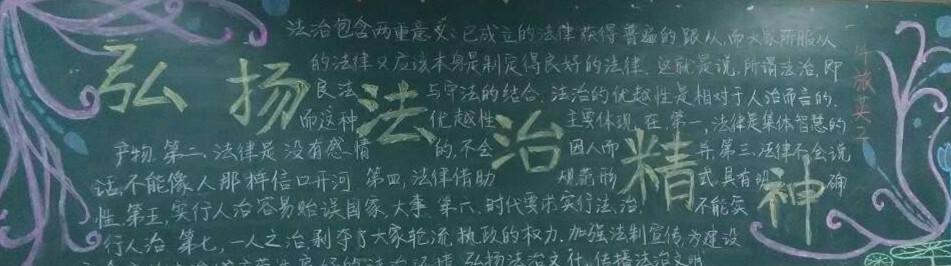 弘扬法治精神
法治包含两重意义:已成立的法律获得普遍的跟从,而大家所服从
的法律又应该本身是制定得良好的法律。这就是说,所谓法治,即
良法 与守法的结合。法治的优越性是相对于人治而言的,
而这种 优越性 主要体现在:第一,法律是集体智慧的
产物。第二、法律是没有感情 的,不会 因人而 异。第三、法律不会说
话,不能像人那样信口开河 第四,法律借助 规范形 式,具有明 确
性。第五,实行人治容易贻误国家大事。第六、时代要求实行法治, 不能实
行人治。第七,一人之治,剥夺了大家轮流执政的权力。加强法制宣传,为建设
弘扬法治文化,传播法治文明